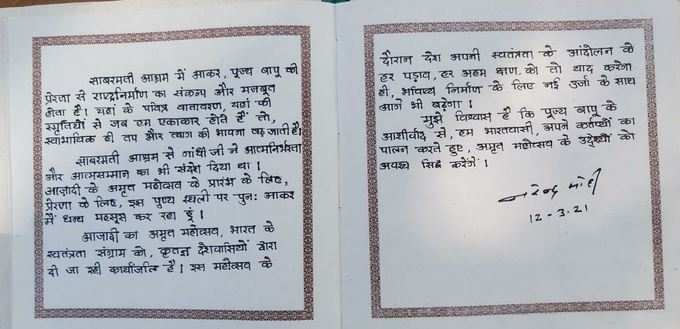 साबरमती आश्रम में आकर, पूज्य बापू की
प्रेरणा से राष्ट्रनिर्माण का संकल्प और मजबूत
होता है। यहां के पवित्र वातावरण, यहां की
स्मृतियों से जब हम एकाकार होते हैं तो,
स्वाभाविक ही तप और त्याग की भावना बढ़ जाती है।
साबरमती आश्रम से गांधी जी ने आत्मनिर्भरता
और आत्मसम्मान का भी संदेश दिया था।
आज़ादी के अमृत महोत्सव के प्रारंभ के लिए,
प्रेरणा के लिए, इस पुण्य स्थली पर पुनः आकर
मैं धन्य महसूस कर रहा हूं।
आजादी का अमृत महोत्सव, भारत के
स्वतंत्रता संग्राम को, कृतज्ञ देशवासियों द्वारा
दी जा रही कार्यांजलि है। इस महोत्सव के
दौरान देश अपनी स्वतंत्रता के आंदोलन के
हर पड़ाव, हर अहम क्षण, को तो याद करेगा
ही, भविष्य निर्माण के लिए नई उर्जा के साथ
आगे भी बढ़ेगा।
मुझे विश्वास है कि पूज्य बापू के
आशीर्वाद से, हम भारतवासी, अपने कर्तव्यों का
पालन करते हुए, अमृत महोत्सव के उद्देश्यों को
अवश्य सिद्ध करेंगे।
नरेन्द्र मोदी
12-3-21